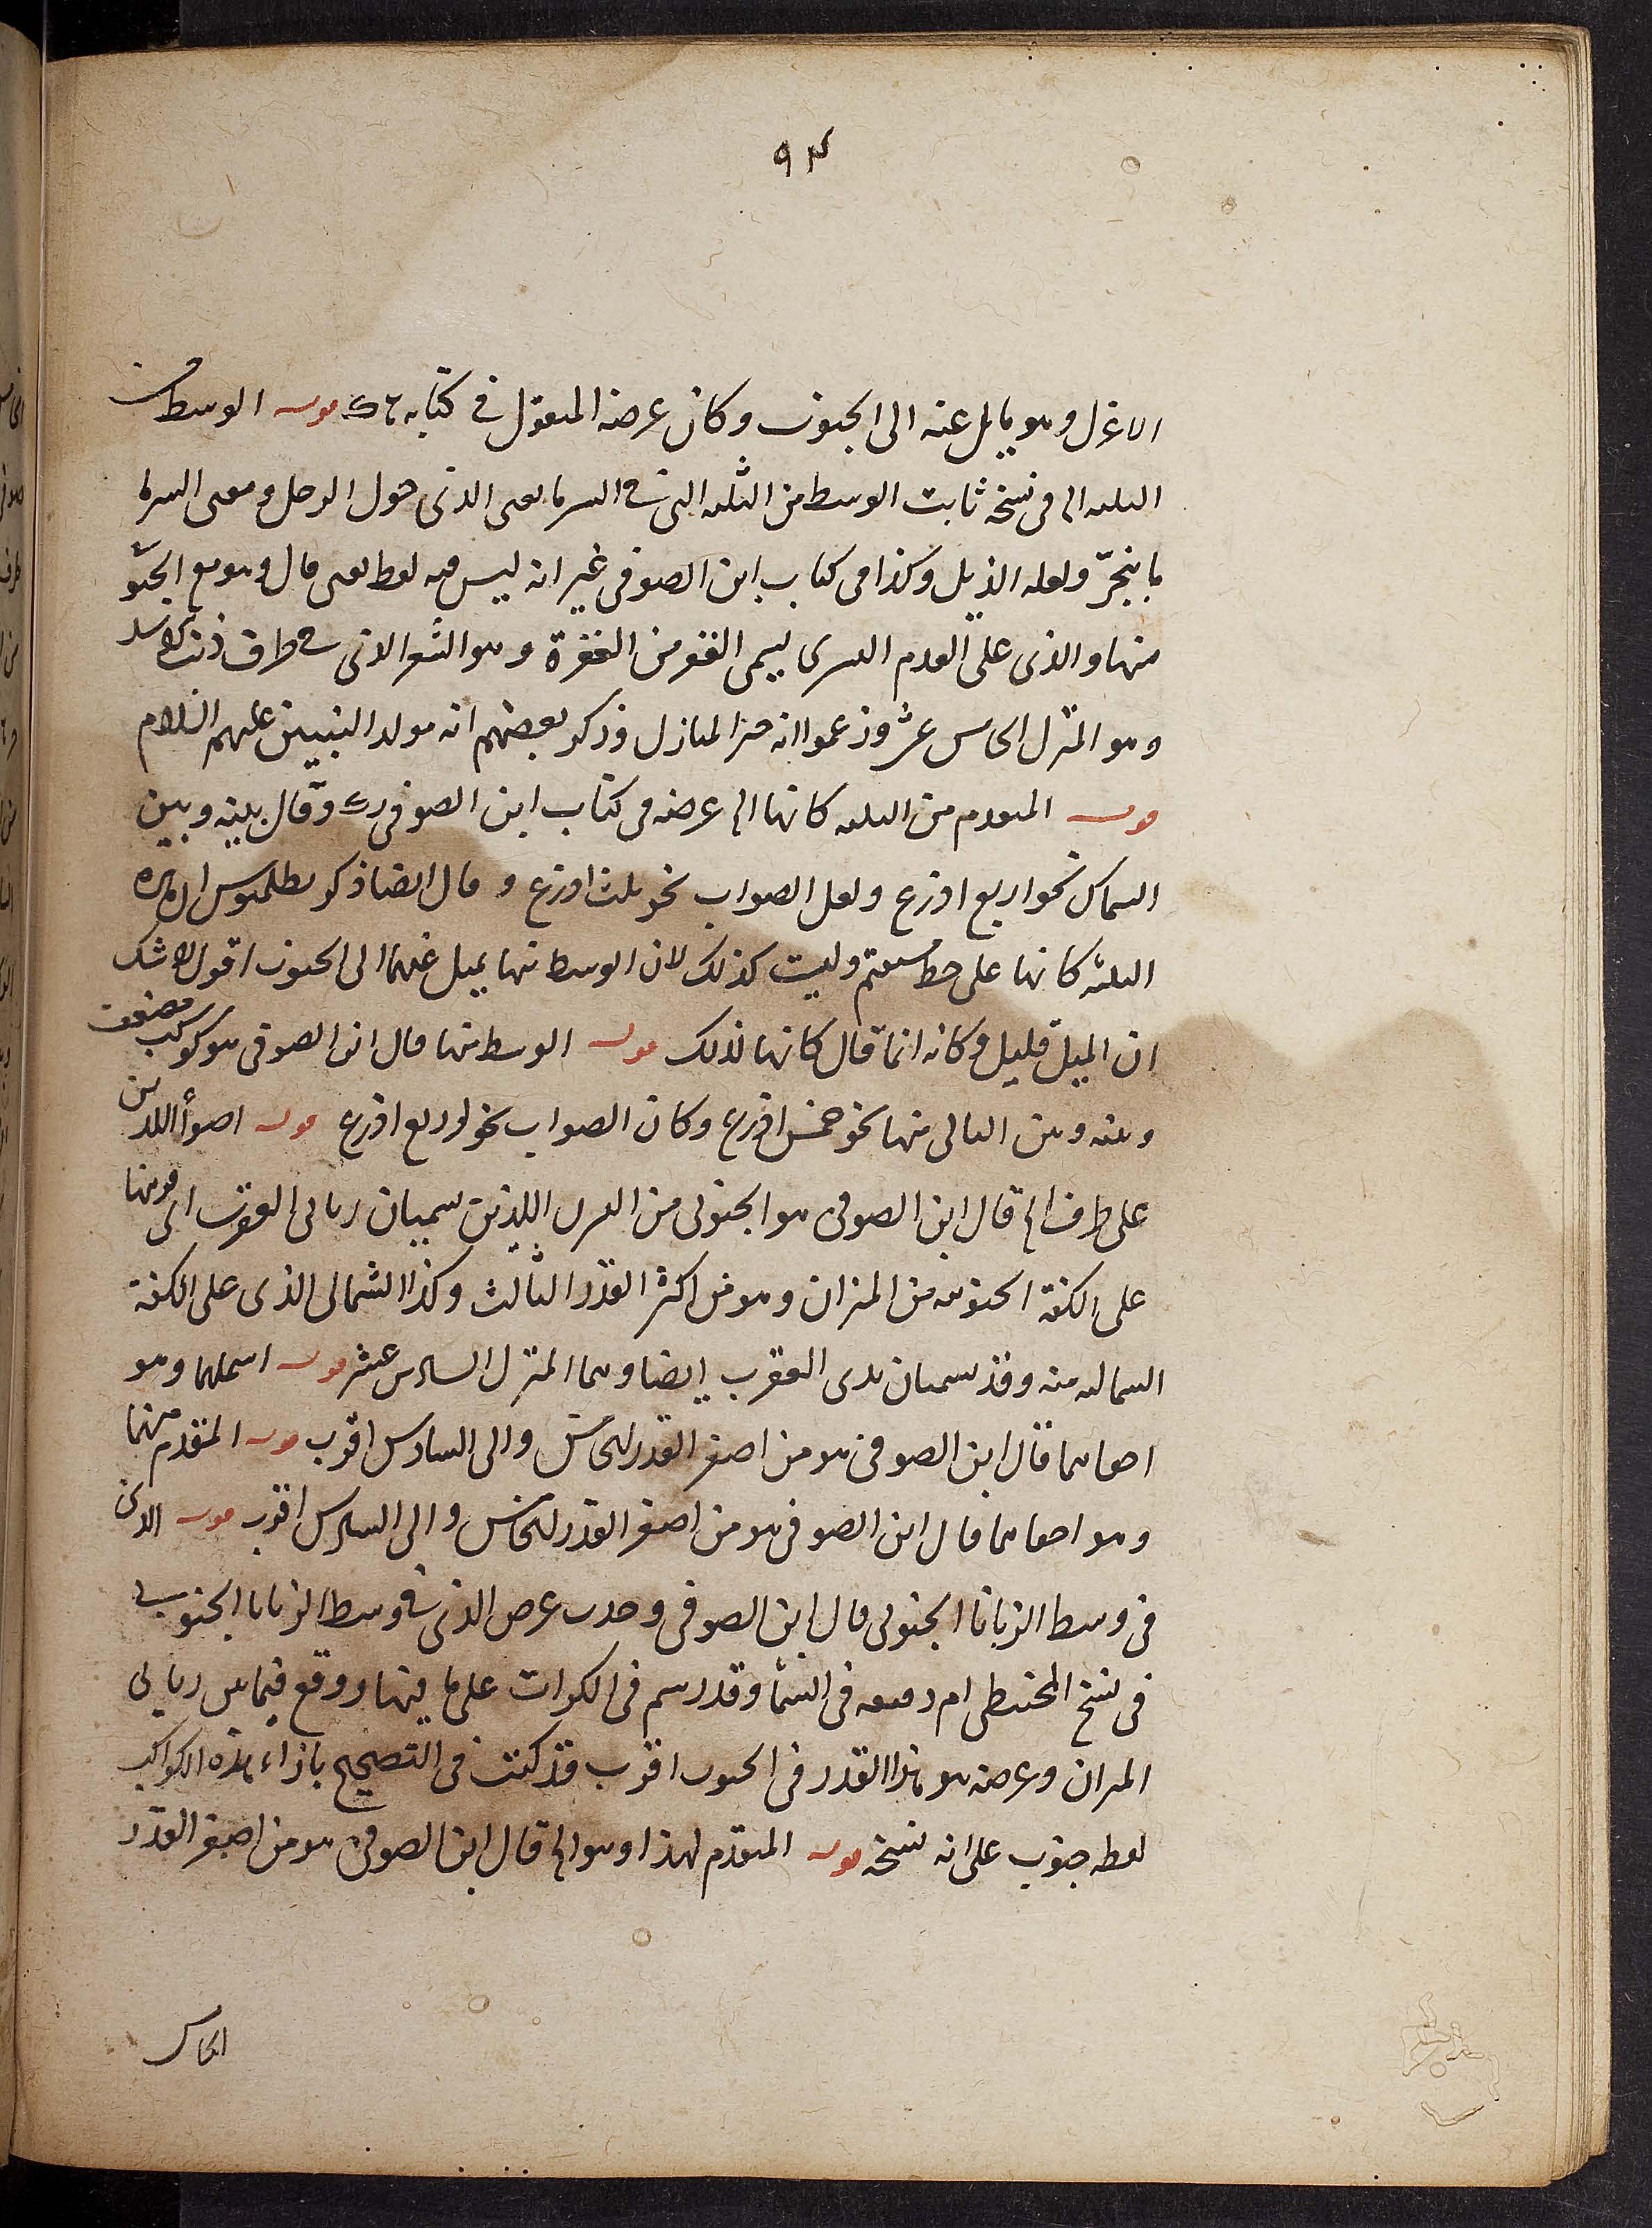 ٩٤
الاعزل وهو مايل عنه الى الجنوب وكان عرضه المنقول فى كتابه قوله الوسط من
الثلثة الى فى نسخة ثابت الوسط من الثلثة التى فى السرما يعنى الذى حول الرجل ومعنى السرما
ما ينجرّ ولعله الذيل وكذا فى كتاب ابن الصوفى غير انه ليس فيه لفظ يعنى قال وهو مع الجنو
منها والذى على القدم اليسرى يسمى الغفر من الغفرة وهو الشعر الذى فى طرف ذنب الاسد
وهو المنزل الخامس عشر وزعموا انه خير المنازل وذكر بعضهم انه مولد النبيين عليهم السلام
قوله المتقدم من الثلثة كانها الى عرضه فى كتاب ابن الصوفى وقال بينه وبين
السماك نحو اربع اذرع ولعل الصواب نحو ثلث اذرع و قال ايضا ذكر بطلميوس ان هذه
الثلثة كانها على خط مستقيم وليست كذلك لان الوسط منها يميل عنهما الى الجنوب اقول لا شك
ان الميل قليل وكانه انما قال كانها لذلك قوله الوسط منها قال ابن الصوفى هو كوكب مضعف
وبينه وبين التالى منها نحو خمس اذرع وكان الصواب نحو اربع اذرع قوله اضوأ اللذين
على طرف الى قال ابن الصوفى هو الجنوبى من النيرين اللذين يسميان زبانى العقرب اى قرنيها
على الكفة الجنوبية من الميزان وهو من اكثر القدر الثالث وكذا الشمالى الذى على الكفة
الشمالية منه وقد يسميان يدى العقرب ايضا وهما المنزل السادس عشر قوله اشملهما وهو
اخفاهما قال ابن الصوفى هو من اصغر القدر الخامس والى السادس اقرب قوله المتقدم منهما
وهو اخفاهما قال ابن الصوفى هو من اصغر القدر الخامس والى السادس اقرب قوله الذى
فى وسط الزبانا الجنوبى قال ابن الصوفى وجدت عرض الذى فى وسط الزبانا الجنوبى
فى نسخ المجسطى ام دقيقه فى الشما وقد رسم فى الكرات على ما فيها ووقع فيما بين زبانى
الميزان وعرضه هو هذا القدر فى الجنوب اقرب قد كتبت فى التصحيح بازاء هذه الكواكب
لفظه جنوب على انه نسخة قوله المتقدم لهذا وهو الى قال ابن الصوفى هو من اصغر القدر
الخامس